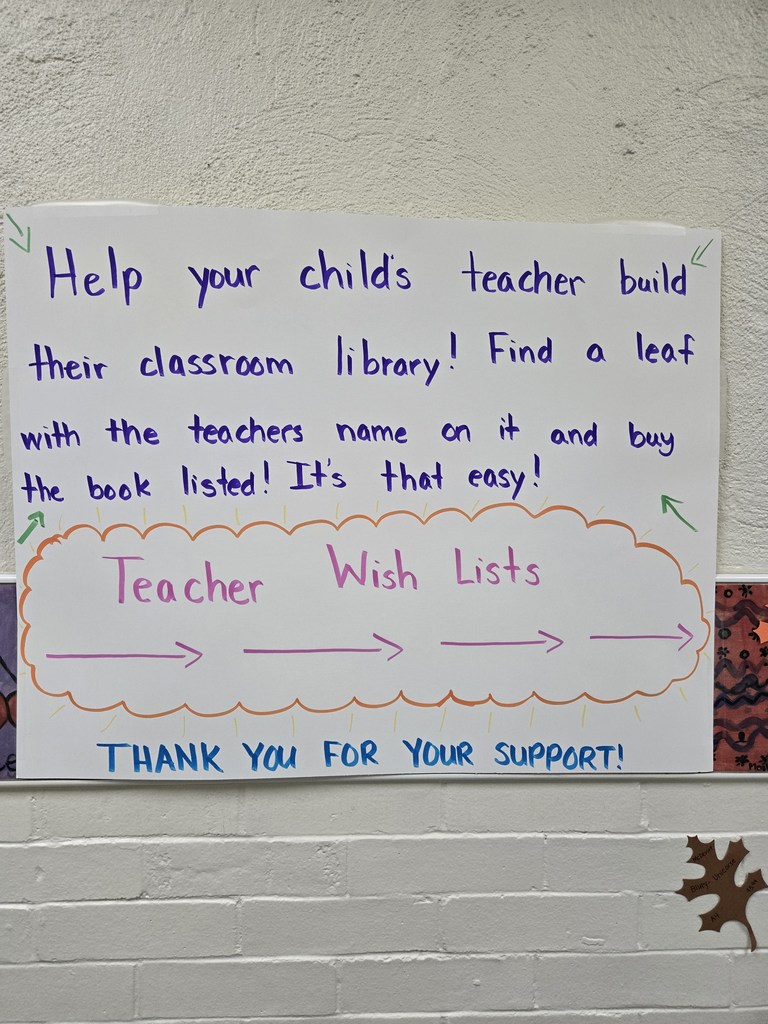 Help your child's teacher build
their classroom library! Find a leaf
with the teachers name on it and buy
the book listed! It's that easy!
Teacher Wish Lists
THANK YOU FOR YOUR SUPPORT!